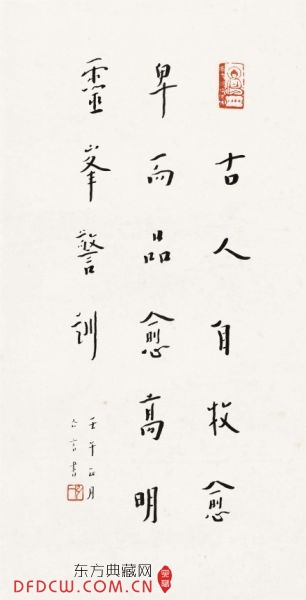 古人自牧愈
卑而品愈高明
靈峯警訓
壬午正月
亾言書
东方典藏网
DFDCW.COM.CN